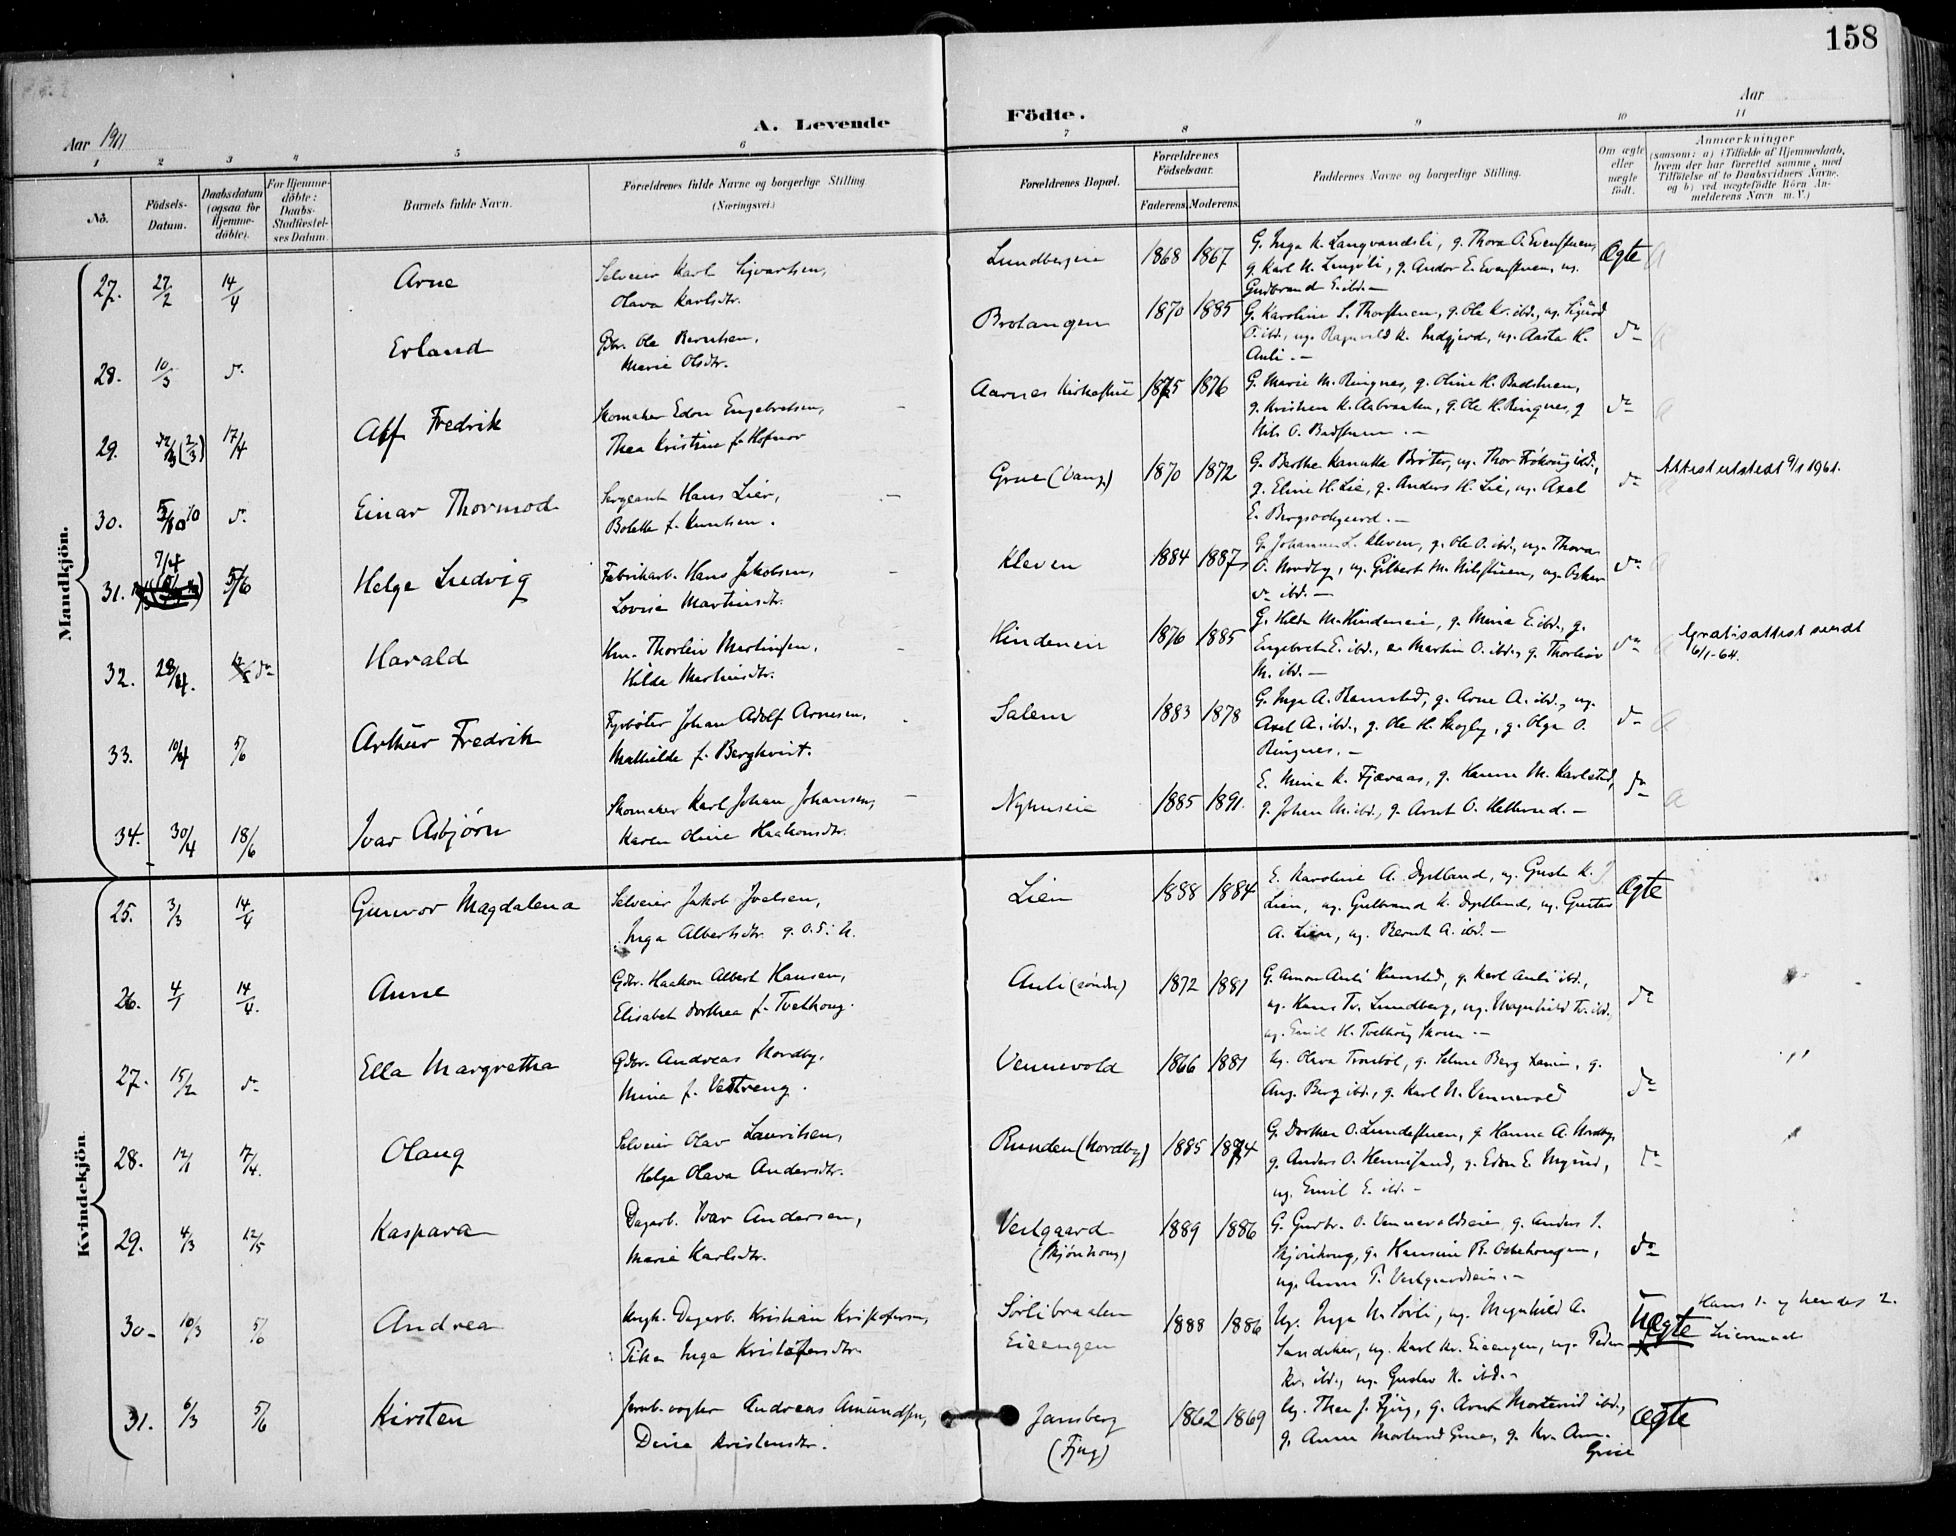 158
Aar 1911
A. Levende
Födte.
Aar
1 2 3 4 5 6 7 8 9 10 11
No.
Födsels-Datum.
Daabsdatum (ogsaa for Hjemme-döbte).
For Hjemme-döbte: Daabs-Stadfæstel-ses Datum.
Barnets fulde Navn.
Forældrenes fulde Navne og borgerlige Stilling (Næringsvei.)
Forældrenes Bopæl.
Forældrenes Födselsaar.
Faderens. Moderens.
Faddernes Navne og borgerlige Stilling.
Om ægte eller uægte födt.
Anmærkninger
(saasom: a) i Tilfælde af Hjemmedaab, hvem der har forrettet samme, med Tilföielse af to Daabsvidners Navne, og b) ved uægtefödte Börn An-melderens Navn m. V.)
Mandkjön.
27. 27/2 14/4 Arne
Selveier Karl Sigvartsen,
Olava Karlsdtr.
Lundbergeie 1868 1867
G. Inga K. Langvandsli, g. Thora A. Evenstuen,
g. Karl K. g. Andor E. Evenstuen, ug.
Gudbrand E. ibd. —
Ægte
28. 10/3 do Erland
Gbr. Ole Berntsen,
Marie Olsdtr.
Brotangen 1870 1885
G. Karoline S. Thorstuen, g. Ole Kr. ibd., ug. Sigurd
O. ibd., ug. Ragnvald K. ug. Aasta H.
Auli. —
do
29. (2/3) 17/4 Alf Fredrik
Skomaker Edor Engebretsen,
Thea Kristine f. Hofmor
Aarnes Kirkestue 1875 1876
G. Marie M. Ringnes, g. Oline H. Badstuen,
g. Kristian K. Aabraaten, g. Ole H. Ringnes, g
Nils O. Badstuen. —
do
30. 5/10 10 do Einar Thormod
Sergeant Hans Lier,
Bolette f. Knutsen.
Grue (Vang) 1870 1872
G. Berthe Kanutte Brøter, ug. Thor ibd.,
g. Eline H. Lie, g. Anders H. Lie, ug. Axel
E. —
do
Attest utstedt 9/1 1961.
31. 7/4 5/6 Helge Ludvig
Fabrikarb. Hans Jakobsen,
Lovise Martinsdtr.
Kleven 1884 1887
G. Johannes L. Kleven, g. Ole O. ibd., ug. Thora
O. Nordby, ug. Gilbert M. Nilsstuen, ug. Oskar
do ibd. —
do
32. 28/4. do Harald
Hm. Thorleiv Martinsen,
Hilda Martinsdtr.
Hindeneie 1876 1885
G. Hilda M. Hindeneie, g. Mina E. ibd., g.
Engebret E. ibd., e. Martin O. ibd., g. Thorleiv
M. ibd. —
do
Gratisattest sendt
6/1-64.
33. 10/4 5/6 Arthur Fredrik
Fyrbøter Johan Adolf Arnesen,
Mathilde f. Bergkvist.
Salem 1883 1878
G. Inga A. Ramstad, g. Arne A. ibd., ug.
Axel A. ibd., g. Ole H. Skogly, g. Olga O.
Ringnes. —
do
34. 30/4 18/6 Ivar Asbjørn
Skomaker Karl Johan Johansen,
Karen Oline Haakonsdtr.
Nyhuseie 1885 1891.
E. Mina K. Fjæraas, g. Hanna M. Karlstad,
g. Johan M. ibd., g. Arnt O. —
do
Kvindekjön.
25. 3/3 14/4 Gunvor Magdalena
Selveier Jakob Joelsen,
Inga Albertsdtr. g. o. s. u.
Lien 1888 1884
E. Karoline A. Dystland, ug. Gusta K.
Lien, ug. Gulbrand K. Dystland, ug. Gustav
A. Lien, ug. Bernt A. ibd. —
Ægte
26. 4/1 14/4. Anne
Gbr. Haakon Albert Hansen,
Elisabet Dorthea f. Tvethoug.
Auli (søndre) 1872 1881
G. Auli g. Karl Auli ibd.,
ug. Hans Tv. Lundberg, ug. Magnhild Tv. ibd.,
ug. Emil H. Tvethoug —
do
27. 15/2 do Ella Margretha
Gbr. Andreas Nordby,
Mina f. Vestreng.
Vennevold 1866 1881
Ug. Olava Tronbøl, g. Selma Berg g.
Aug. Berg ibd., g. Karl N. Vennevold
do
28. 12/1 17/4. Olaug
Selveier Olav Lauritsen,
Helga Olava Andersdtr.
Runden (Nordby) 1885 1874
G. Dorthea O. Lundestuen, g. Hanna A. Nordby,
g. Anders O. g. Edor E. Myrud,
ug. Emil E. ibd. —
do
29. 4/3 12/5 Kaspara
Dagarb. Ivar Andersen,
Marie Karlsdtr.
Vestgaard
(Skjønhoug) 1889 1886
G. Gudbr. O. Vennevoldseie, g. Anders I.
Skjønhoug, g. Hansine R. Ostehougen,
ug. Anna P. Vestgaardseie. —
do
30. 10/3 5/6 Andrea
Ungk. Dagarb. Kristian Kristofersen,
Pike Inga Kristofersdtr.
Sørlibraaten
Eieengen 1888 1886
Ug. Inga N. Sørli, ug. Magnhild A.
Sandaker, ug. Karl Kr. Eieengen, ug. Peder
Kr. ibd., ug. Gustav K. ibd. —
Uægte
Hans 1. og hendes 2.
Leiermaal
31. 6/3 5/6 Kirsten
Jernb.vogter Andreas Amundsen,
Dina Kristensdtr.
Jansberg
(Fjug) 1862 1869
Ug. Thea J. Fjug, g. Arnt Mosterud ibd.,
g. Anna Morlund Grue, g. Kr. Am.
Grue
Ægte